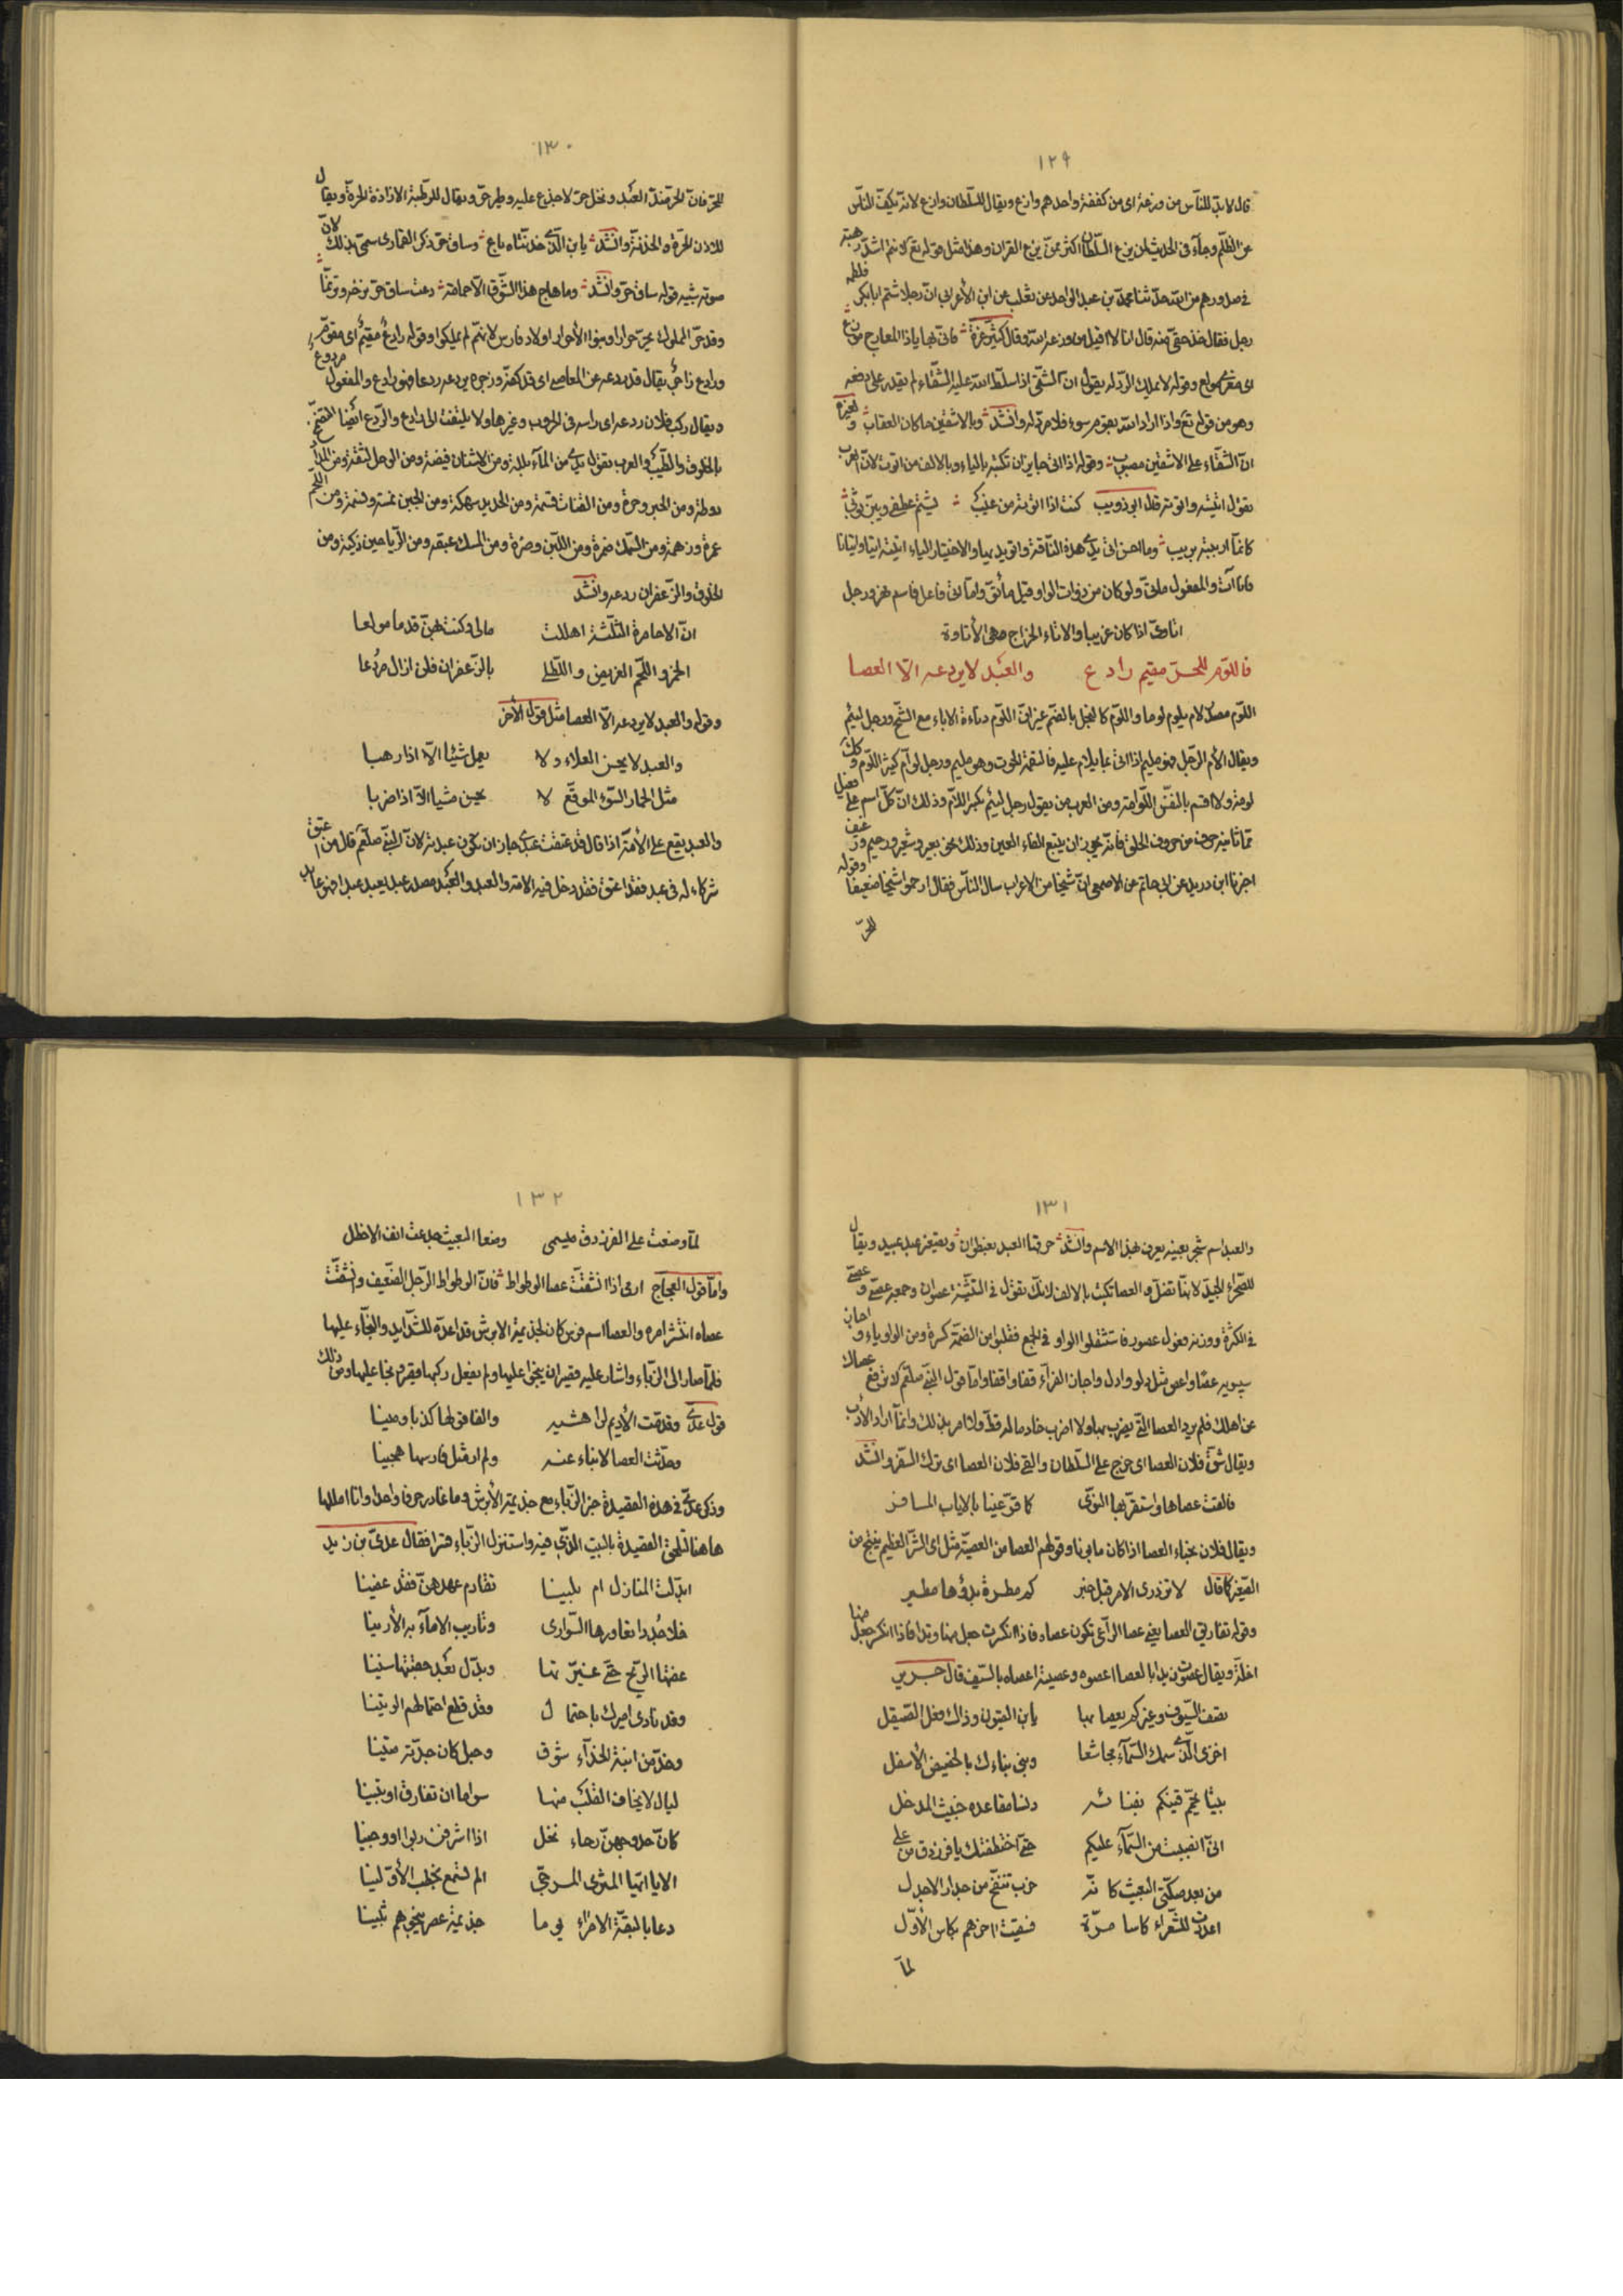 ١٢٩
قال لابد للناس من وزعة اى من كففة واحدهم وازع ويقال للسلطان وازع لانه يكف الناس
عن الظلم وجآء فى الحديث لمن يزع السلطان اكثر ممن يزع القران وهذا مثل قوله تع لانتم اشد رهبة
فى صدورهم من الله حدثنا محمد بن عبد الواحد عن ثعلب عن ابن الأعرابى ان رجلا شتم ابا بكر
رجل فقال خذ حقى منه قال انا لا اقيل من وزعة الله وقال كثير عزة فانى بها ياذا المعارج موزع
اى مغرى مولع وقوله لا يملك الرد له يقول ان الشقى اذا سلط الله عليه الشقاء لم يقدر على دفعه
وهو من قوله تع واذا اراد الله بقوم سوء فلا مرد له وانشد وبالاشقين ما كان العقاب
ان الشقاء على الاشقين مصبوب وقوله اذا اتى جايز ان تكتبه بالياء وبالالف من اتوت لان العرب
يقول اتيته واتوته قال ابو ذويب كنت اذا اتوته من غيب يشم عطفى ويبز ثوبى
كانما اربته بريب وما احسن اتى يدى هذه الناقة واتو يديها والاختيار الياء اتيته اتيا واتيانا
فانا آت والمفعول ماتى ولو كان من ذوات الواو قيل مأتو واما اتى فاعل فاسم نهر ورجل
اتاوى اذا كان غريبا والاتاء الخراج وهى الأتاوة
فاللوم للحر مقيم رادع والعبد لا يردعه الا العصا
اللوم مصدر لام يلوم لوما واللؤم كالبخل بالضم غير ان اللؤم دناءة الاباء مع الشح ورجل لئيم
ويقال الأم الرجل فهو مليم اذا اتى بما يلام عليه فالتقمه الحوت وهو مليم ورجل لوآم كثير اللوم وكذلك
لومة ولا اقسم بالنفس اللوامة ومن العرب من يقول رجل لئيم بكسر اللام وذلك ان كل اسم على فعيل
مما ثانيه حرف من حروف الحلق فانه يجوز ان يتبع الفاء العين وذلك نحو بعير وشعير ورحيم ورغيف
اخبرنا ابن دريد عن ابى حاتم عن الاصمعى ان شيخا من الاعراب سال الناس فقال ارحموا شيخا ضعيفا وقوله
للحر
١٣٠
للحر فان الحر ضد العبد ونخل حر لا جذع عليه وطير حر ويقال للرطبة الازاذة الحرة ويقال
للاذن الحرة والحذنة وانشد يا بن الذى حذنتاه باع وساق حر ذكر القمارى سمى بذلك لان
صوته يشبه قوله ساق حر وانشد وما هاج هذا الشوق الا حمامة دعت ساق حر ترحة وترنما
وقد حر المملوك يحر حرارا وبنوا الأحرار اولاد فارس لانهم لم يملكوا وقوله رادع مقيم اى مقوم
ورادع زاجر يقال قد ردعه عن المعاصى اى قد كفه وزجره يردعه ردعا فهو رادع والمفعول مردوع
ويقال ركب فلان ردعه اى راسه فى الحروب وغيرها ولا يلتفت الى رادع والردع ايضا التضمخ
بالخلوق والطيب والعرب يقول يدى من المآء بللة ومن الاشنان قيضة ومن الوحل لثقة ومن الدم
الخلوق والزعفران ردعه وانشد
ان الاحامرة الثلثة اهلكت مالى وكنت بهن قدما مولعا
الخمر واللحم الغريض والطلى بالزعفران فلن ازال مردعا
وقوله والعبد لا يردعه الا العصا مثل قول الأخر
والعبد لا يحسن العلاء ولا يعمل شيئا الا اذا رهبا
مثل الحمار السوء الموقع لا يحسن مشيا الا اذا ضربا
والعبد يقع على الأمة اذا قال قد عتقت عبدى جاز ان يكون عبدته لان النبى صلعم قال من اعتق
شركا له فى عبد فقد اعتق فقد دخل فيه الامة والعبد والعبد مصدر عبد يعبد عبدا فهو عابد
١٣١
والعبد اسم شجر بعينه يعرف بهذا الاسم وانشد حرقها العبد بعنظوان وتصغير عبد عبيد ويقال
للصحراء الجبد لانها تضل والعصا تكتب بالالف لانك تقول فى التثنية عصوان وجمعه عصى وعصى
فى الكثرة ووزنه فعول عصوو فاستثقلوا الواو فى الجمع فقلبوا من الضمة كسرة ومن الواو ياء واجاز
سيبويه عصا واعص مثل دلو وادل واجاز الفرآء قفا واقفا واما قول النبى صلعم لا ترفع عصاك
عن اهلك فلم يرد العصا التى يضرب بها ولا اضرب خادما له قط ولا امر بذلك وانما اراد الأدب
ويقال شق فلان العصا اى خرج على السلطان والقى فلان العصا اى ترك السفر وانشد
فالقت عصاها واستقر بها النوى كما قر عينا بالاياب المسافر
ويقال فلان يخباء العصا اذا كان مابونا وقولهم العصا من العصية مثل اى الشر العظيم ينتج من
الصغير كما قال لا تزدرى الامر قبل خبر كم مطرة بدؤها مطير
وقوله تفاريق العصا يعنى عصا الراعى تكون عصاه فاذا انكرت جعل منها وتدا فاذا انكسر جعل منها
اخلة ويقال عصوت زيدا بالعصا اعصوه وعصيته اعصاه بالسيف قال جرير
يصف السيوف وغيركم يعصا بها يابن القيون وذاك فعل الصيقل
اخزى الذى سمك السمآء مجاشعا وبنى بناءك بالحضيض الأسفل
بيتا يحمم قينكم بفنائه دنسا مقاعده خبيث المدخل
انى انصببت من السمآء عليكم حتى اختطفتك يا فرزدق من على
من بعد صكتى البعيث كانه خرب تنفج من حذار الاجدل
اعددت للشعراء كاسا مرة فسقيت اخرهم بكاس الأول
لما
١٣٢
لما وضعت على الفرزدق ميسمى وضغا البعيث جدعت انف الاخطل
واما قول العجاج ارمى اذا انشقت عصا الوطواط فان الوطواط الرجل الضعيف وانشقت
عصاه انتشر امره والعصا اسم فرس كان لجذيمة الابرش قد اعده للشدايد والنجآء عليها
فلما صار الى الزباء واشار عليه قصير ان ينجوا عليها ولم يفعل ركبها قصير ونجا عليها وفى ذلك
قول عدى وقدمت الأديم لراهشيه والفا قولها كذبا ومينا
وحدثت العصا الانباء عنه ولم ار مثل فارسها هجينا
وذكر عدى فى هذه القصيدة خبر الزباء مع جذيمة الأبرش وما غادر حرفا واحدا وانا امللها
هاهنا لتلحق القصيدة بالبيت الذى فيه واستنزل الزباء قسرا فقال عدى بن زيد
ابدلت المنازل ام بلينا تقادم عهدهن فقد عفينا
عفتها الريح حتى غيرتها وبدل بعد جدتها سنينا
وقد نادى اميرك باحتمال وقد قطع احتمالهم الوتينا
ليال لا يخاف القلب منها سواما ان تفارق او تبينا
الا يا ايها المثرى المرجى الم تسمع بخطب الأولينا
دعا بالبقة الامراء يوما جذيمة عصر ينجوهم ثبينا